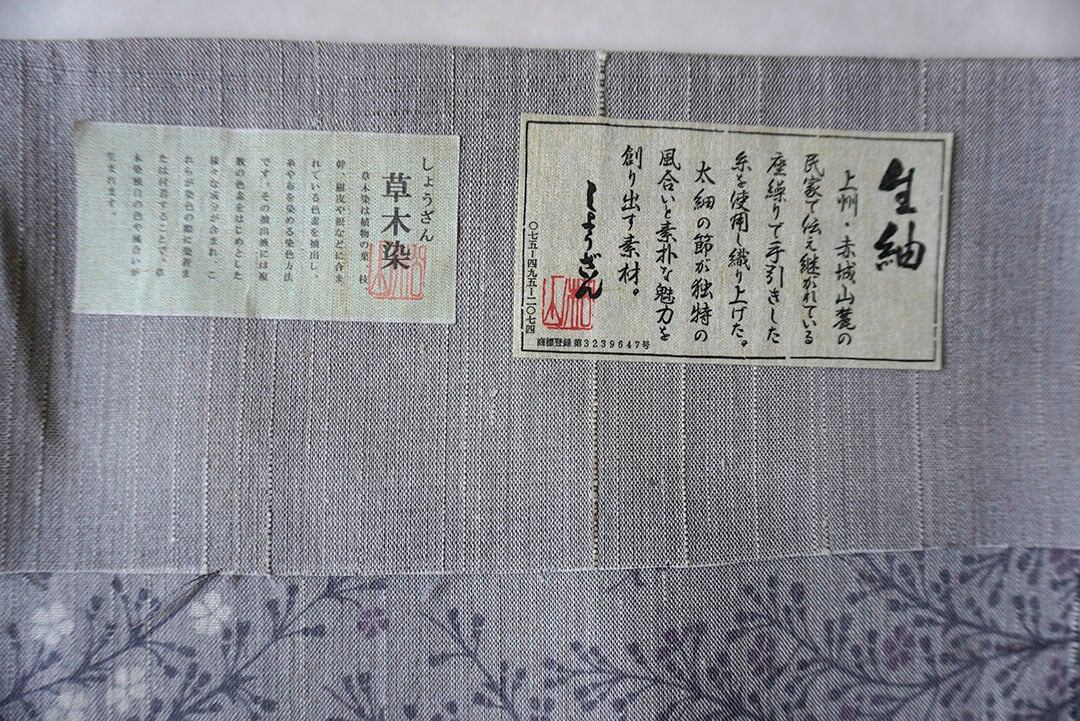 生紬
上州・赤城山麓の
民家で伝え継がれている
座繰りで手引きした
糸を使用し織り上げた。
太細の節が独特の
風合いと素朴な魅力を
創り出す素材。
しょうざん
〇七五-四九五-二〇七四
商標登録 第3239647号
しょうざん
草木染
草木染は植物の葉、枝
幹、樹皮や根などに含ま
れている色素を抽出し、
糸や布を染める染色方法
です。その抽出液には複
数の色素をはじめとした
様々な成分が含まれ、こ
れらが染色の際に染着ま
たは付着することで、草
木染独自の色や風合いが
生まれます。